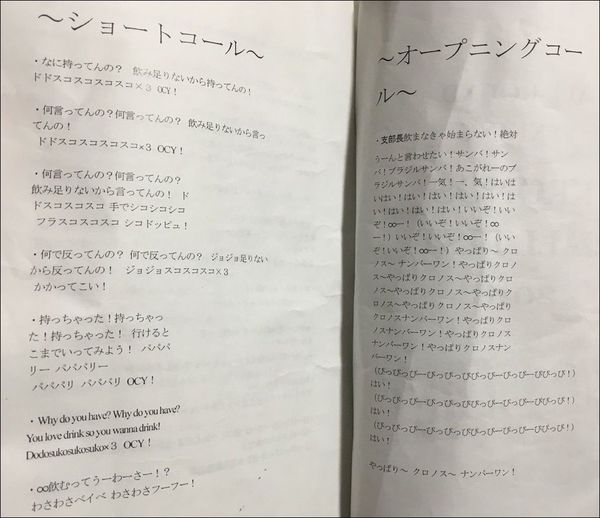 ～ショートコール～
・なに持ってんの？ 飲み足りないから持ってんの！
ドドスコスコスコスコ×３ OCY！
・何言ってんの？何言ってんの？ 飲み足りないから言っ
てんの！
ドドスコスコスコスコ×3 OCY！
・何言ってんの？何言ってんの？
飲み足りないから言ってんの！ ド
ドスコスコスコ 手でシコシコシコ
フラスコスコスコ シコドッピュ！
・何で反ってんの？ 何で反ってんの？ ジョジョ足りない
から反ってんの！ ジョジョスコスコスコ×３
かかってこい！
・持っちゃった！持っちゃっ
た！持っちゃった！ 行けると
こまでいってみよう！ パパパ
リー パパパリー
パパパリ パパパリ OCY！
・Why do you have? Why do you have?
You love drink so you wanna drink!
Dodosukosukosuko×３ OCY！
・∞飲むってうーわーさー！？
わさわさベイベ わさわさフーフー！
～オープニングコー
ル～
・支部長飲まなきゃ始まらない！絶対
うーんと言わせたい！サンバ！サン
バ！ブラジルサンバ！あこがれーのブ
ラジルサンバ！一気！一、気！はいは
いはい！はい！はい！はい！はい！は
い！はい！はい！はい！いいぞ！いい
ぞ！∞ー！（いいぞ！いいぞ！∞
ー！）いいぞ！いいぞ！∞ー！（いい
ぞ！いいぞ！∞ー！）やっぱり～ ク
ロノス～ ナンバーワン！やっぱりクロノ
ス～やっぱりクロノス～やっぱりクロ
ノス～やっぱりクロノス～やっぱりク
ロノス～やっぱりクロノス～やっぱり
クロノスナンバーワン！やっぱりクロ
ノスナンバーワン！やっぱりクロノス
ナンバーワン！やっぱりクロノスナン
バーワン！
（ぴっぴっぴーぴっぴっぴっぴっぴーぴっぴーぴぴっぴ！）
はい！
（ぴっぴっぴーぴっぴっぴっぴっぴーぴっぴーぴぴっぴ！）
はい！
（ぴっぴっぴーぴっぴっぴっぴっぴーぴっぴーぴぴっぴ！）
はい！
やっぱり～ クロノス～ ナンバーワン！